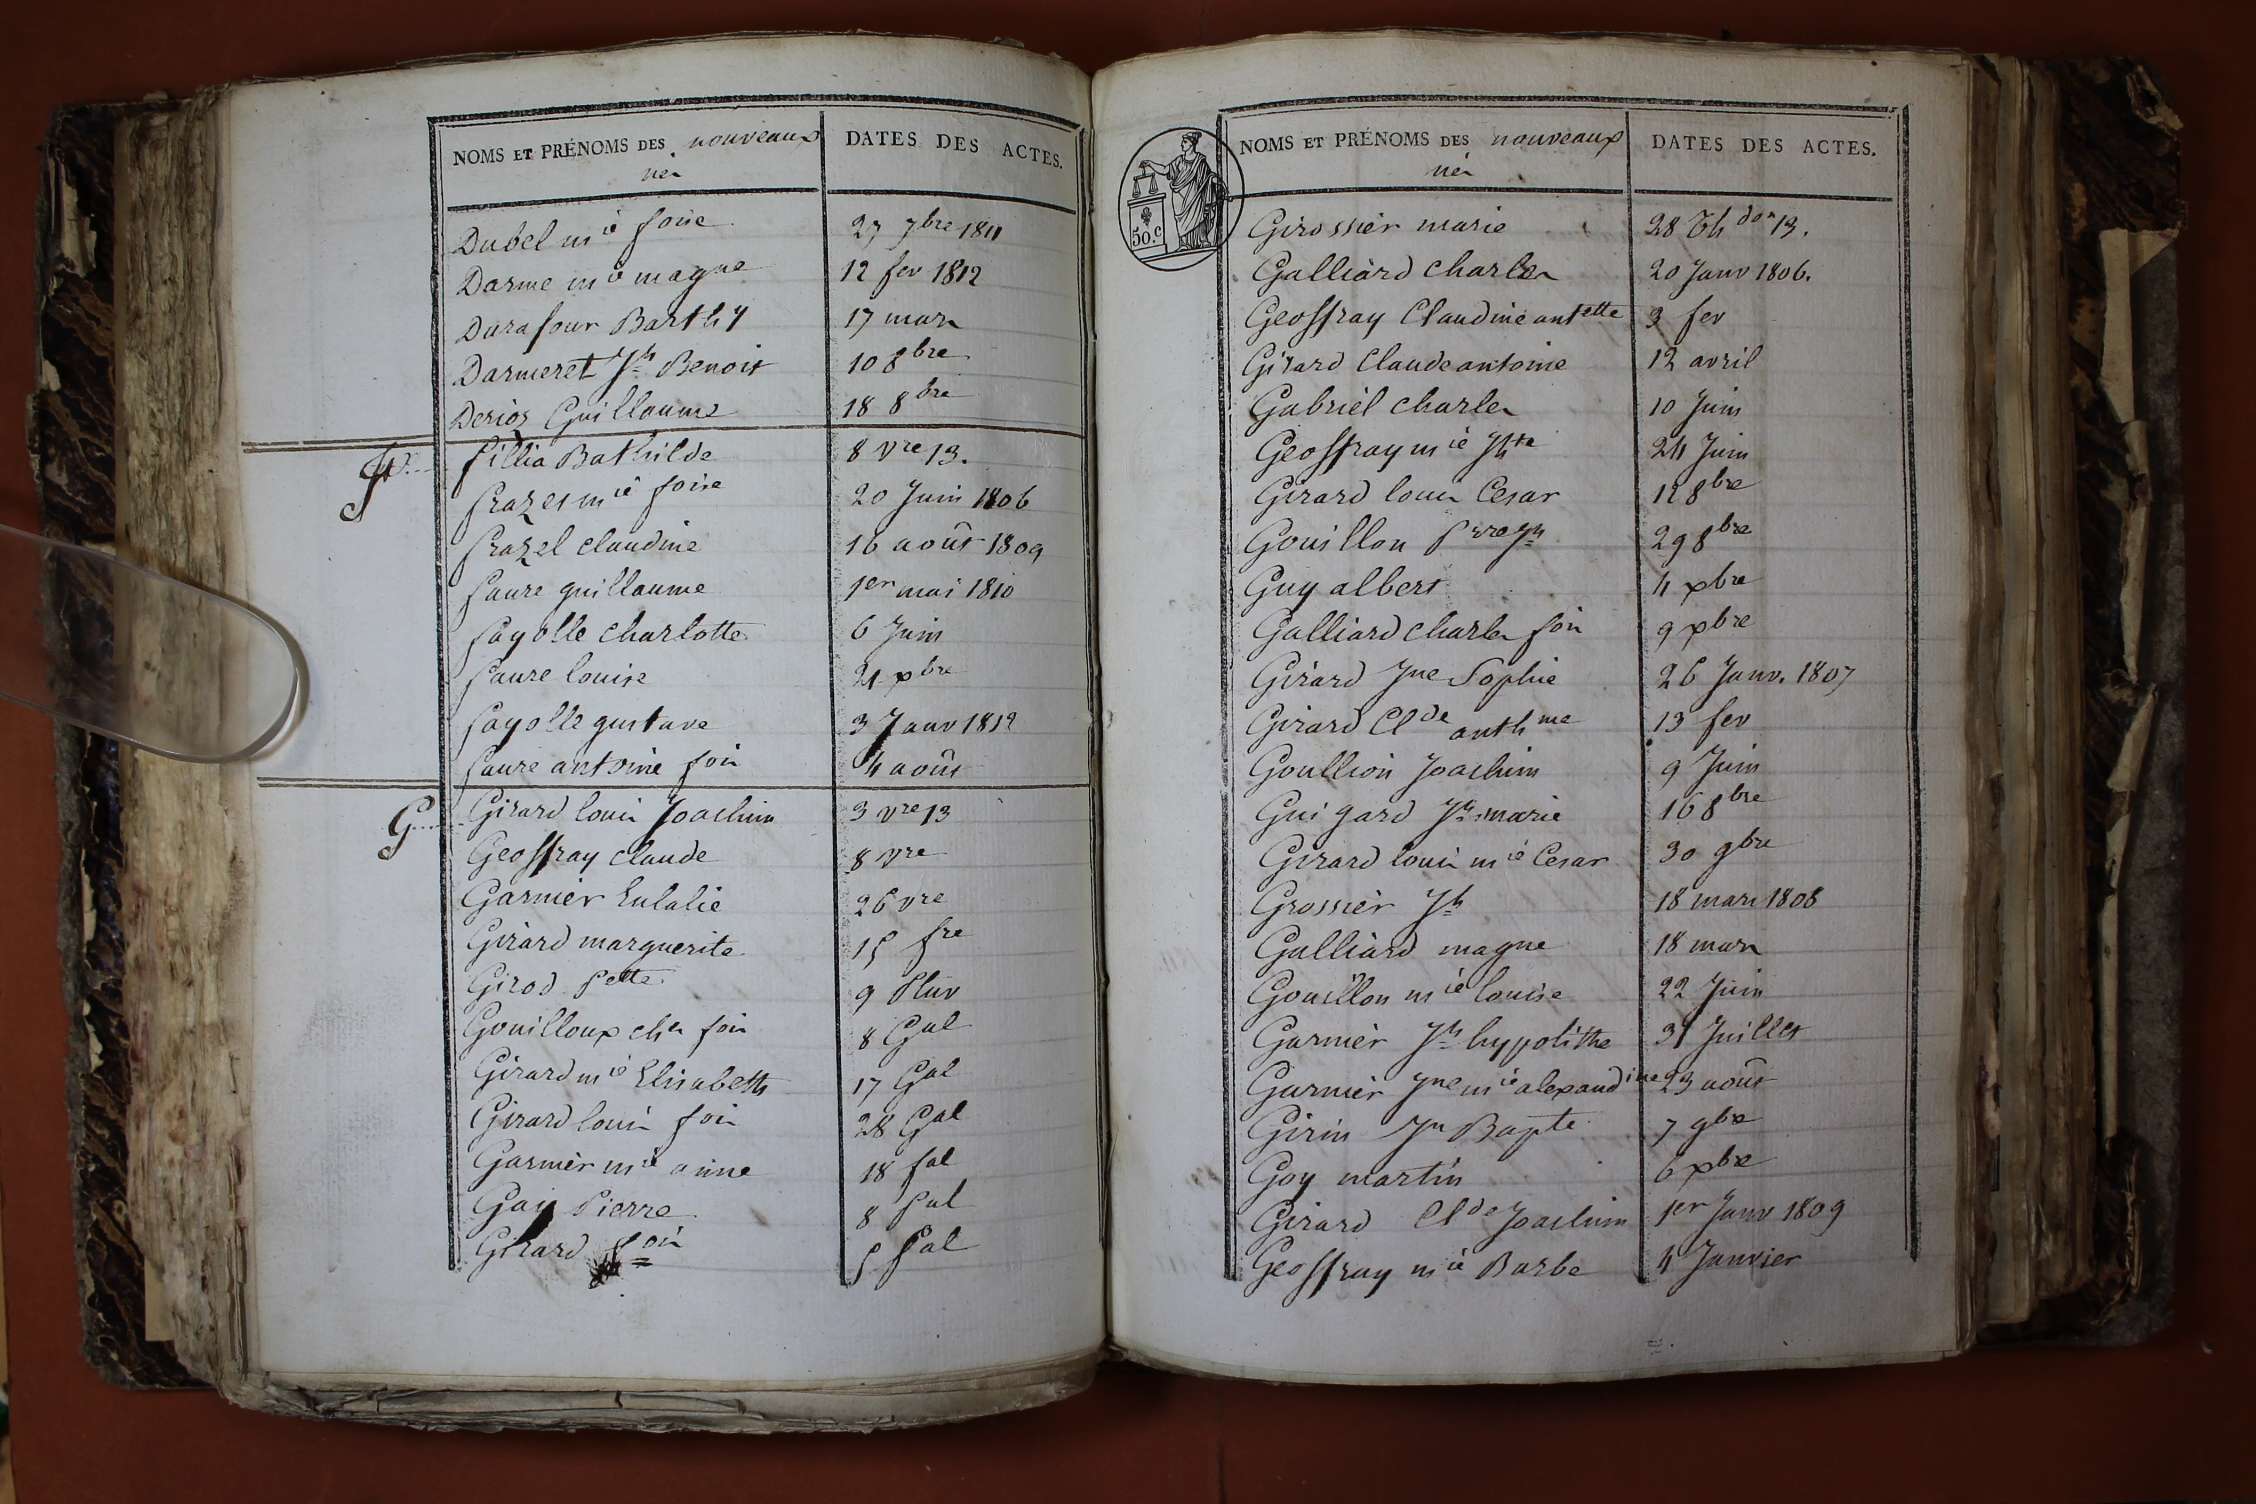 NOMS ET PRÉNOMS DES nouveaux
nés
DATES DES ACTES.
Dubel mie foise 27 7bre 1811
Darme mie magne 12 fev 1812
Durafour Barthy 17 mars
Darmeret Jh Benoit 10 8bre
Derios Guillaume 18 8bre
F
fillia Bathilde 8 vre 13.
frazet mie foise 20 Juin 1806
frazel claudine 16 août 1809
faure guillaume 1er mai 1810
fayolle charlotte 6 Juin
faure louise 21 xbre
fayolle gustave 3 Janv 1812
faure antoine fois 4 août
G
Girard louis Joachim 3 vre 13
Geoffray claude 8 vre
Garnier Eulalie 26 vre
Girard marguerite 15 fre
Girod Pette 9 Pluv
Gouilloux chs fois 8 Gal
Girard mie Elisabeth 17 Gal
Girard louis fois 28 Gal
Garnier mie anne 18 fal
Gay Pierre 8 Pal
Girard fois 5 Pal
50.c
NOMS ET PRÉNOMS DES nouveaux
nés
DATES DES ACTES.
Girossier marie 28 Th dor 13.
Galliard charles 20 Janv 1806.
Geoffray Claudine antette 3 fev
Girard Claude antoine 12 avril
Gabriel charles 10 Juin
Geoffray mie Jhte 24 Juin
Girard louis Cesar 12 8bre
Gouillon Pierre Jh 29 8bre
Guy albert 4 xbre
Galliard charles fois 9 xbre
Girard Jne Sophie 26 Janv. 1807
Girard Clde anthme 13 fev
Goullion Joachim 9 Juin
Guigard Jh marie 16 8bre
Girard louis mie Cesar 30 9bre
Grossier Jh 18 mars 1808
Galliard magne 18 mars
Gouillon mie louise 22 Juin
Garnier Jh hyppolithe 31 Juillet
Garnier Jne mie alexandine 23 août
Girin Jn Bapte 7 9bre
Goy martin 6 xbre
Girard Clde Joachim 1er Janv 1809
Geoffray mie Barbe 4 Janvier